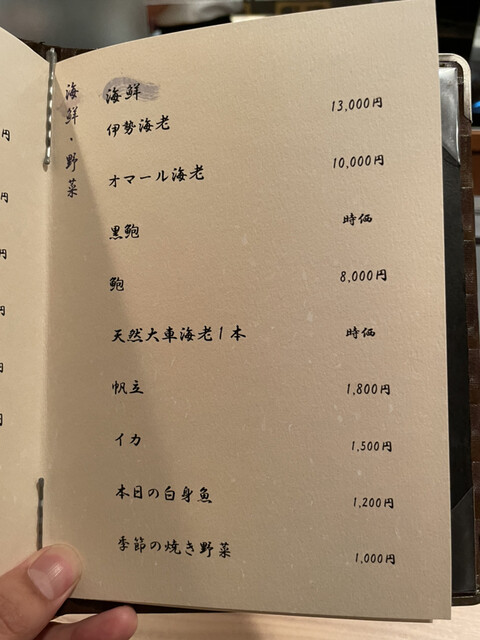 海鮮・野菜
海鮮
伊勢海老 13,000円
オマール海老 10,000円
黒鮑 時価
鮑 8,000円
天然大車海老1本 時価
帆立 1,800円
イカ 1,500円
本日の白身魚 1,200円
季節の焼き野菜 1,000円
円
円
円
円
円
円